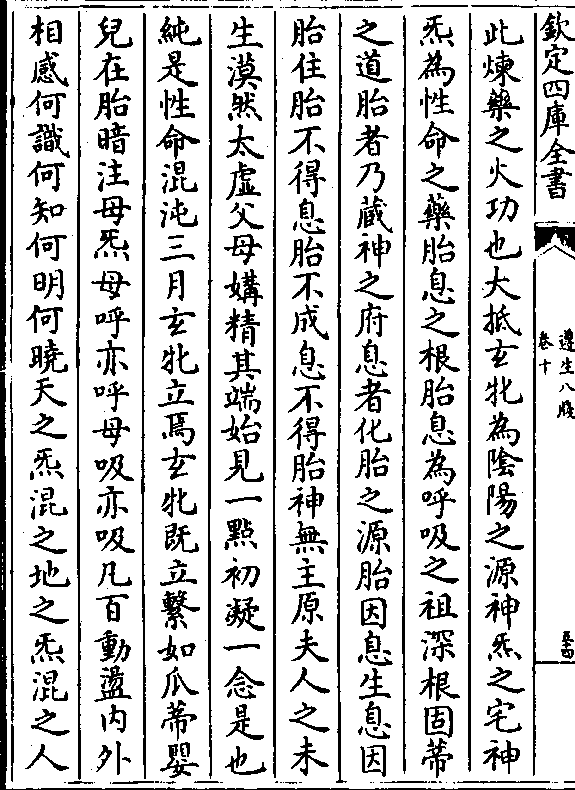 欽定四庫全書
遵生八牋
卷十
五十四
此煉藥之火功也大抵玄牝為陰陽之源神炁之宅神
炁為性命之藥胎息之根胎息為呼吸之祖深根固蒂
之道胎者乃藏神之府息者化胎之源胎因息生息因
胎住胎不得息胎不成息不得胎神無主原夫人之未
生漠然太虛父母媾精其端始見一點初凝一念是也
純是性命混沌三月玄牝立焉玄牝既立繫如瓜蒂嬰
兒在胎暗注母炁母呼亦呼母吸亦吸凡百動盪内外
相感何識何知何明何曉天之炁混之地之炁混之人